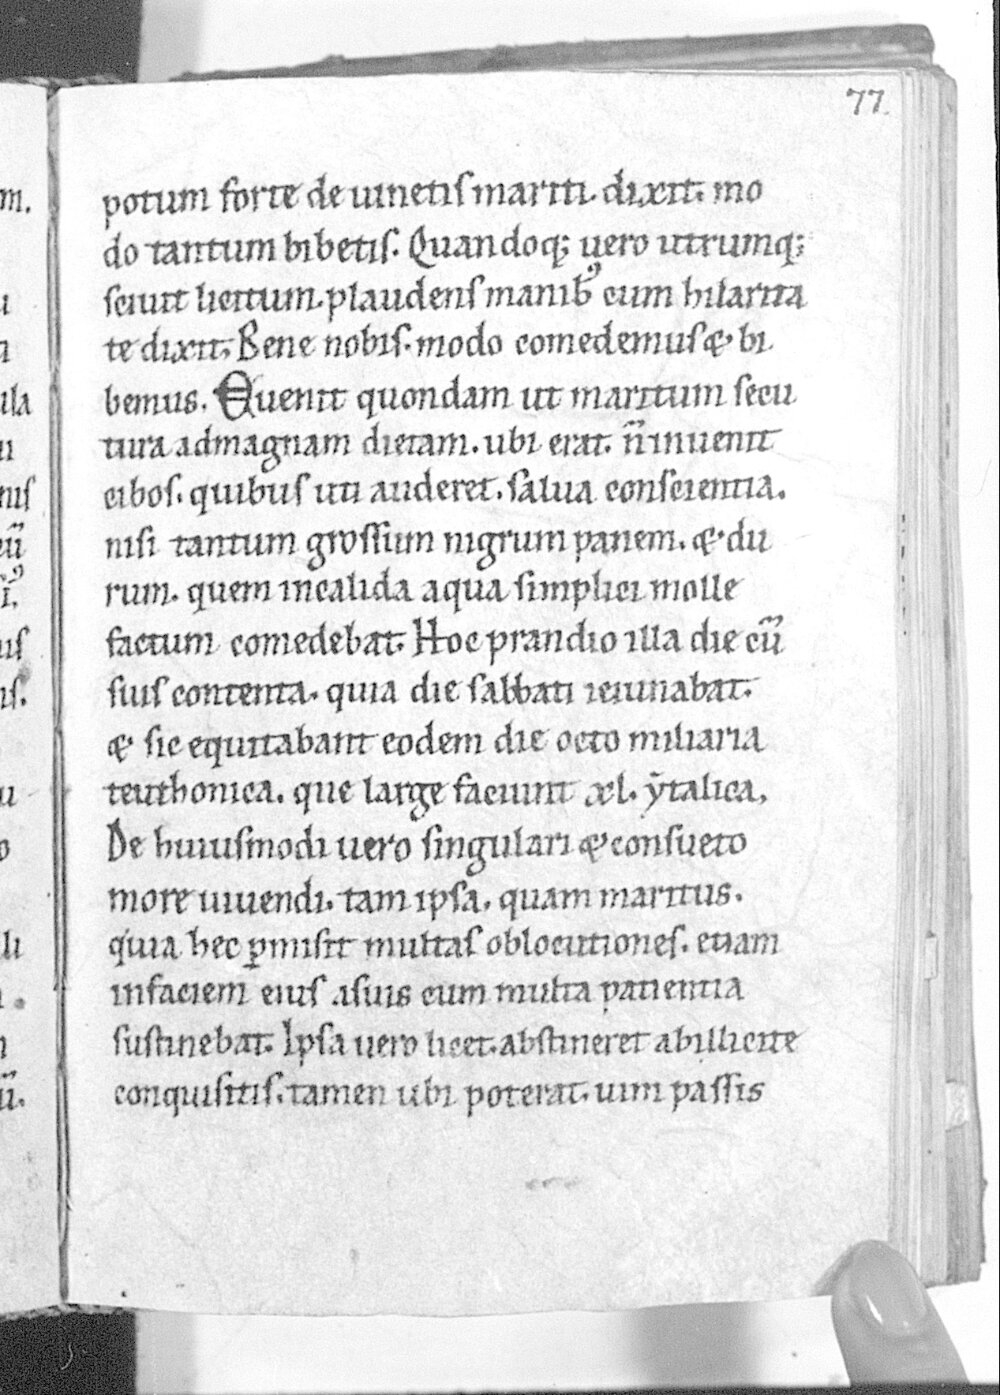 77.
m.
potum forte de uinetis mariti. dixit. mo
do tantum bibetis. Quandoq; uero utrumq;
sciuit licitum. plaudens manib9 cum hilarita
te dixit. Bene nobis. modo comedemus & bi
bemus. Euenit quondam ut maritum secu
tura admagnam dietam. ubi erat. n̄ inuenit
cibos. quibus uti auderet. salua conscientia.
nisi tantum grossum nigrum panem. & du
rum. quem incalida aqua simplici molle
factum comedebat. Hoc prandio illa die cū
suis contenta. quia die sabbati ieiunabat.
& sic equitabant eodem die octo miliaria
teuthonica. que large faciunt xl. ẏtalica.
De huiusmodi uero singulari & consueto
more uiuendi. tam ipsa. quam maritus.
quia hec ꝑmisit multas oblocutiones. etiam
infaciem eius asuis cum multa patientia
sustinebat. Ipsa uero licet. abstineret abillicite
conquisitis. tamen ubi poterat. uim passis